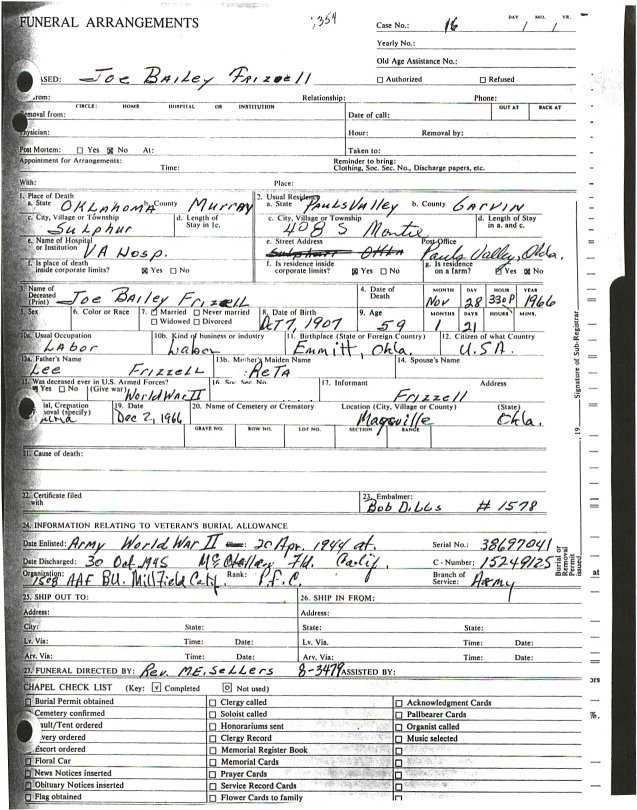 FUNERAL ARRANGEMENTS
Case No.: 16 DAY MO. YR. / /
Yearly No.:
Old Age Assistance No.:
ASED: Joe Bailey Frizzell ☐ Authorized ☐ Refused
rom: Relationship: Phone:
CIRCLE: HOME HOSPITAL OR INSTITUTION OUT AT BACK AT
emoval from: Date of call:
hysician: Hour: Removal by:
Post Mortem: ☐ Yes ☒ No At: Taken to:
Appointment for Arrangements: Time: Reminder to bring: Clothing, Soc. Sec. No., Discharge papers, etc.
With: Place:
1. Place of Death 2. Usual Residence
a. State OKLAHOMA b. County MURRAY a. State Pauls Valley b. County GARVIN
c. City, Village or Township d. Length of Stay in 1c. c. City, Village or Township d. Length of Stay in a. and c.
Sulphur 408 S
e. Name of Hospital or Institution VA Hosp. e. Street Address Post Office Pauls Valley, Okla.
f. Is place of death inside corporate limits? ☒ Yes ☐ No f. Is residence inside corporate limits? ☒ Yes ☐ No g. Is residence on a farm? Yes ☒ No
3. Name of Deceased (Print) Joe Bailey Frizzell 4. Date of Death MONTH DAY HOUR YEAR
Nov 28 330P 1966
5. Sex 6. Color or Race 7. Married ☐ Never married ☐ Widowed ☐ Divorced 8. Date of Birth Oct 7, 1907 9. Age 59 MONTHS DAYS HOURS MINS.
1 21
10a. Usual Occupation 10b. Kind of business or industry 11. Birthplace (State or Foreign Country) 12. Citizen of what Country
Labor Labor Emmitt, Okla. U.S.A.
13a. Father's Name 13b. Mother's Maiden Name 14. Spouse's Name
Lee Frizzell Reta
15. Was deceased ever in U.S. Armed Forces? 16. Soc. Sec. No. 17. Informant Address
Yes ☐ No (Give war) World War II Frizzell
ial, Cremation oval (specify) 19. Date 20. Name of Cemetery or Crematory Location (City, Village or County) (State)
Dec 2, 1966 Maysville Okla.
GRAVE NO. ROW NO. LOT NO. SECTION RANGE
21. Cause of death:
22. Certificate filed with 23. Embalmer: Bob Dills # 1578
24. INFORMATION RELATING TO VETERAN'S BURIAL ALLOWANCE
Date Enlisted: Army World War II 20 Apr. 1944 at. Serial No.: 38697041
Date Discharged: 30 Oct 1945 Calif. C - Number: 15249125
Organization: AAF BU. Millfield Calif. Rank: P.f.C. Branch of Service: Army
25. SHIP OUT TO: 26. SHIP IN FROM:
Address: Address:
City: State: State: State:
Lv. Via: Time: Date: Lv. Via: Time: Date:
Arv. Via: Time: Date: Arv. Via: Time: Date:
27. FUNERAL DIRECTED BY: Rev. M.E. Sellers 8-3479 ASSISTED BY:
CHAPEL CHECK LIST (Key: ☑ Completed ☐ Not used)
☐ Burial Permit obtained ☐ Clergy called ☐ Acknowledgment Cards
Cemetery confirmed ☐ Soloist called ☐ Pallbearer Cards
ault/Tent ordered ☐ Honorariums sent ☐ Organist called
very ordered ☐ Clergy Record ☐ Music selected
Escort ordered ☐ Memorial Register Book ☐
☐ Floral Car ☐ Memorial Cards ☐
☐ News Notices inserted ☐ Prayer Cards ☐
☐ Obituary Notices inserted ☐ Service Record Cards ☐
☐ Flag obtained ☐ Flower Cards to family ☐
Signature of Sub-Registrar
19
Burial or Removal Permit issued
at
ors
%.